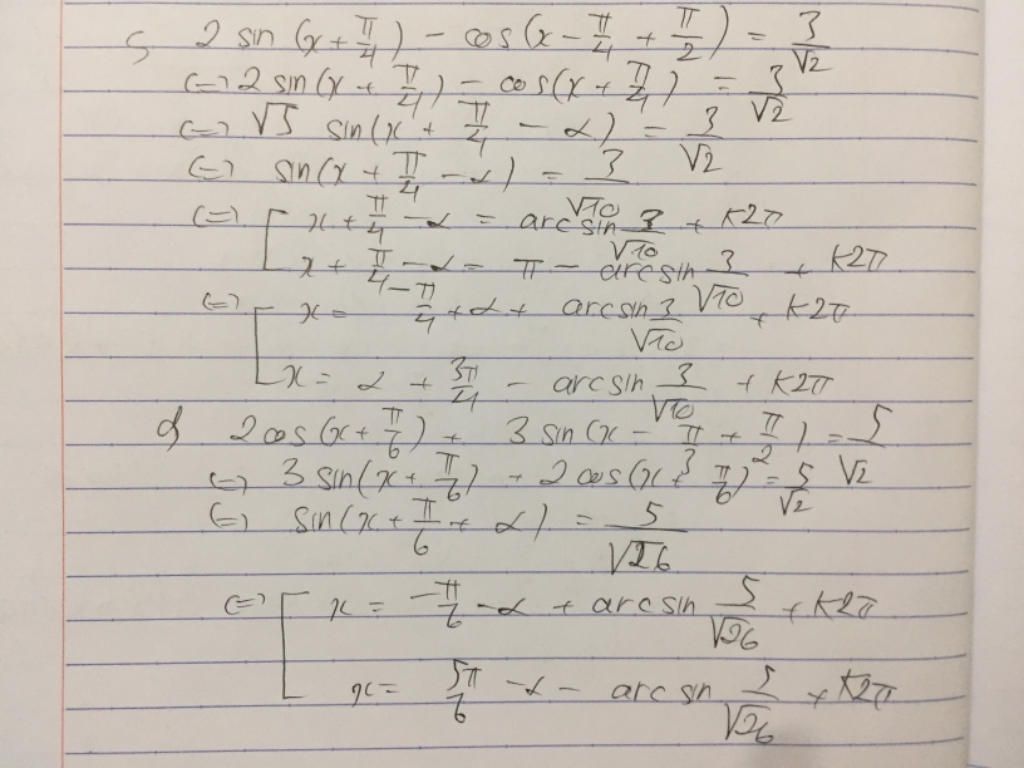 c, 2 sin (x + π/4) - cos(x - π/4 + π/2) = 3/√2
(=) 2 sin (x + π/4) - cos(x + π/4) = 3/√2
(=) √5 sin(x + π/4 - α) = 3/√2
(=) sin(x + π/4 - α) = 3/√10
(=) [ x + π/4 - α = arcsin 3/√10 + k2π
x + π/4 - α = π - arcsin 3/√10 + k2π
(=) [ x = -π/4 + α + arcsin 3/√10 + k2π
x = α + 3π/4 - arcsin 3/√10 + k2π
d, 2 cos (x + π/6) + 3 sin (x - π/3 + π/2) = 5/√2
(=) 3 sin(x + π/6) + 2 cos(x + π/6) = 5/√2
(=) sin(x + π/6 + α) = 5/√26
(=) [ x = -π/6 - α + arcsin 5/√26 + k2π
x = 5π/6 - α - arcsin 5/√26 + k2π